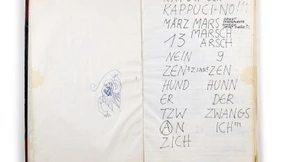 KAPPUCI-NO!!!
MÄRZ MARS
MARSCH
13 ARSCH
NEIN 9
ZEN ZEN
HUND HUNN
ER DER
TZW ZWANGS
AN ICH
ZICH